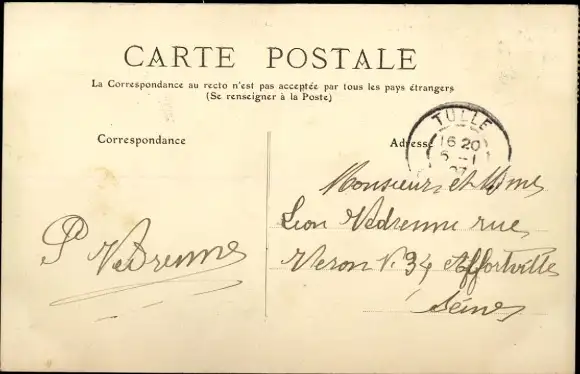 CARTE POSTALE
La Correspondance au recto n'est pas acceptée par tous les pays étrangers
(Se renseigner à la Poste)
Correspondance
Adresse
TULLE
16 20
6 - 1
07
Monsieur et Mme
Leon Vedrenne rue
Veron N. 34 Alfortville
Seine
P Vedrenne